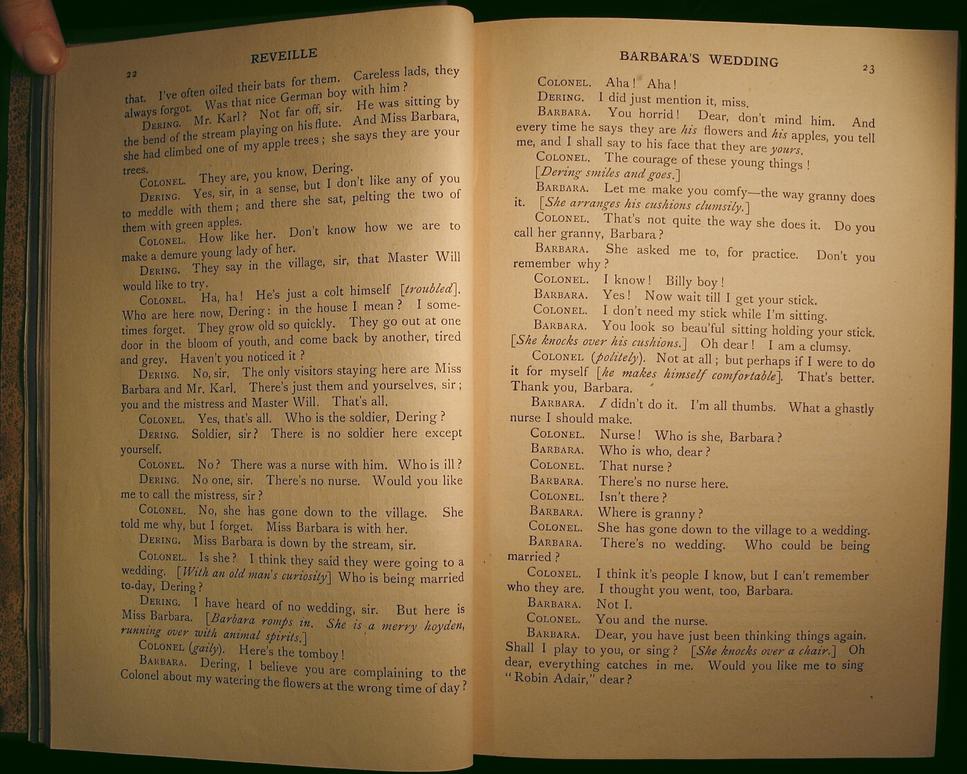 REVEILLE
22
that. I've often oiled their bats for them. Careless lads, they
always forgot. Was that nice German boy with him?
DERING. Mr. Karl? Not far off, sir. He was sitting by
the bend of the stream playing on his flute. And Miss Barbara,
she had climbed one of my apple trees; she says they are your
trees.
COLONEL. They are, you know, Dering.
DERING. Yes, sir, in a sense, but I don't like any of you
to meddle with them; and there she sat, pelting the two of
them with green apples.
COLONEL. How like her. Don't know how we are to
make a demure young lady of her.
DERING. They say in the village, sir, that Master Will
would like to try.
COLONEL. Ha, ha! He's just a colt himself [troubled].
Who are here now, Dering: in the house I mean? I some-
times forget. They grow old so quickly. They go out at one
door in the bloom of youth, and come back by another, tired
and grey. Haven't you noticed it?
DERING. No, sir. The only visitors staying here are Miss
Barbara and Mr. Karl. There's just them and yourselves, sir;
you and the mistress and Master Will. That's all.
COLONEL. Yes, that's all. Who is the soldier, Dering?
DERING. Soldier, sir? There is no soldier here except
yourself.
COLONEL. No? There was a nurse with him. Who is ill?
DERING. No one, sir. There's no nurse. Would you like
me to call the mistress, sir?
COLONEL. No, she has gone down to the village. She
told me why, but I forget. Miss Barbara is with her.
DERING. Miss Barbara is down by the stream, sir.
COLONEL. Is she? I think they said they were going to a
wedding. [With an old man's curiosity] Who is being married
to-day, Dering?
DERING. I have heard of no wedding, sir. But here is
Miss Barbara. [Barbara romps in. She is a merry hoyden,
running over with animal spirits.]
COLONEL (gaily). Here's the tomboy!
BARBARA. Dering, I believe you are complaining to the
Colonel about my watering the flowers at the wrong time of day?
BARBARA'S WEDDING
23
COLONEL. Aha! Aha!
DERING. I did just mention it, miss.
BARBARA. You horrid! Dear, don't mind him. And
every time he says they are his flowers and his apples, you tell
me, and I shall say to his face that they are yours.
COLONEL. The courage of these young things!
[Dering smiles and goes.]
BARBARA. Let me make you comfy—the way granny does
it. [She arranges his cushions clumsily.]
COLONEL. That's not quite the way she does it. Do you
call her granny, Barbara?
BARBARA. She asked me to, for practice. Don't you
remember why?
COLONEL. I know! Billy boy!
BARBARA. Yes! Now wait till I get your stick.
COLONEL. I don't need my stick while I'm sitting.
BARBARA. You look so beau'ful sitting holding your stick.
[She knocks over his cushions.] Oh dear! I am a clumsy.
COLONEL (politely). Not at all; but perhaps if I were to do
it for myself [he makes himself comfortable]. That's better.
Thank you, Barbara.
BARBARA. I didn't do it. I'm all thumbs. What a ghastly
nurse I should make.
COLONEL. Nurse! Who is she, Barbara?
BARBARA. Who is who, dear?
COLONEL. That nurse?
BARBARA. There's no nurse here.
COLONEL. Isn't there?
BARBARA. Where is granny?
COLONEL. She has gone down to the village to a wedding.
BARBARA. There's no wedding. Who could be being
married?
COLONEL. I think it's people I know, but I can't remember
who they are. I thought you went, too, Barbara.
BARBARA. Not I.
COLONEL. You and the nurse.
BARBARA. Dear, you have just been thinking things again.
Shall I play to you, or sing? [She knocks over a chair.] Oh
dear, everything catches in me. Would you like me to sing
"Robin Adair," dear?